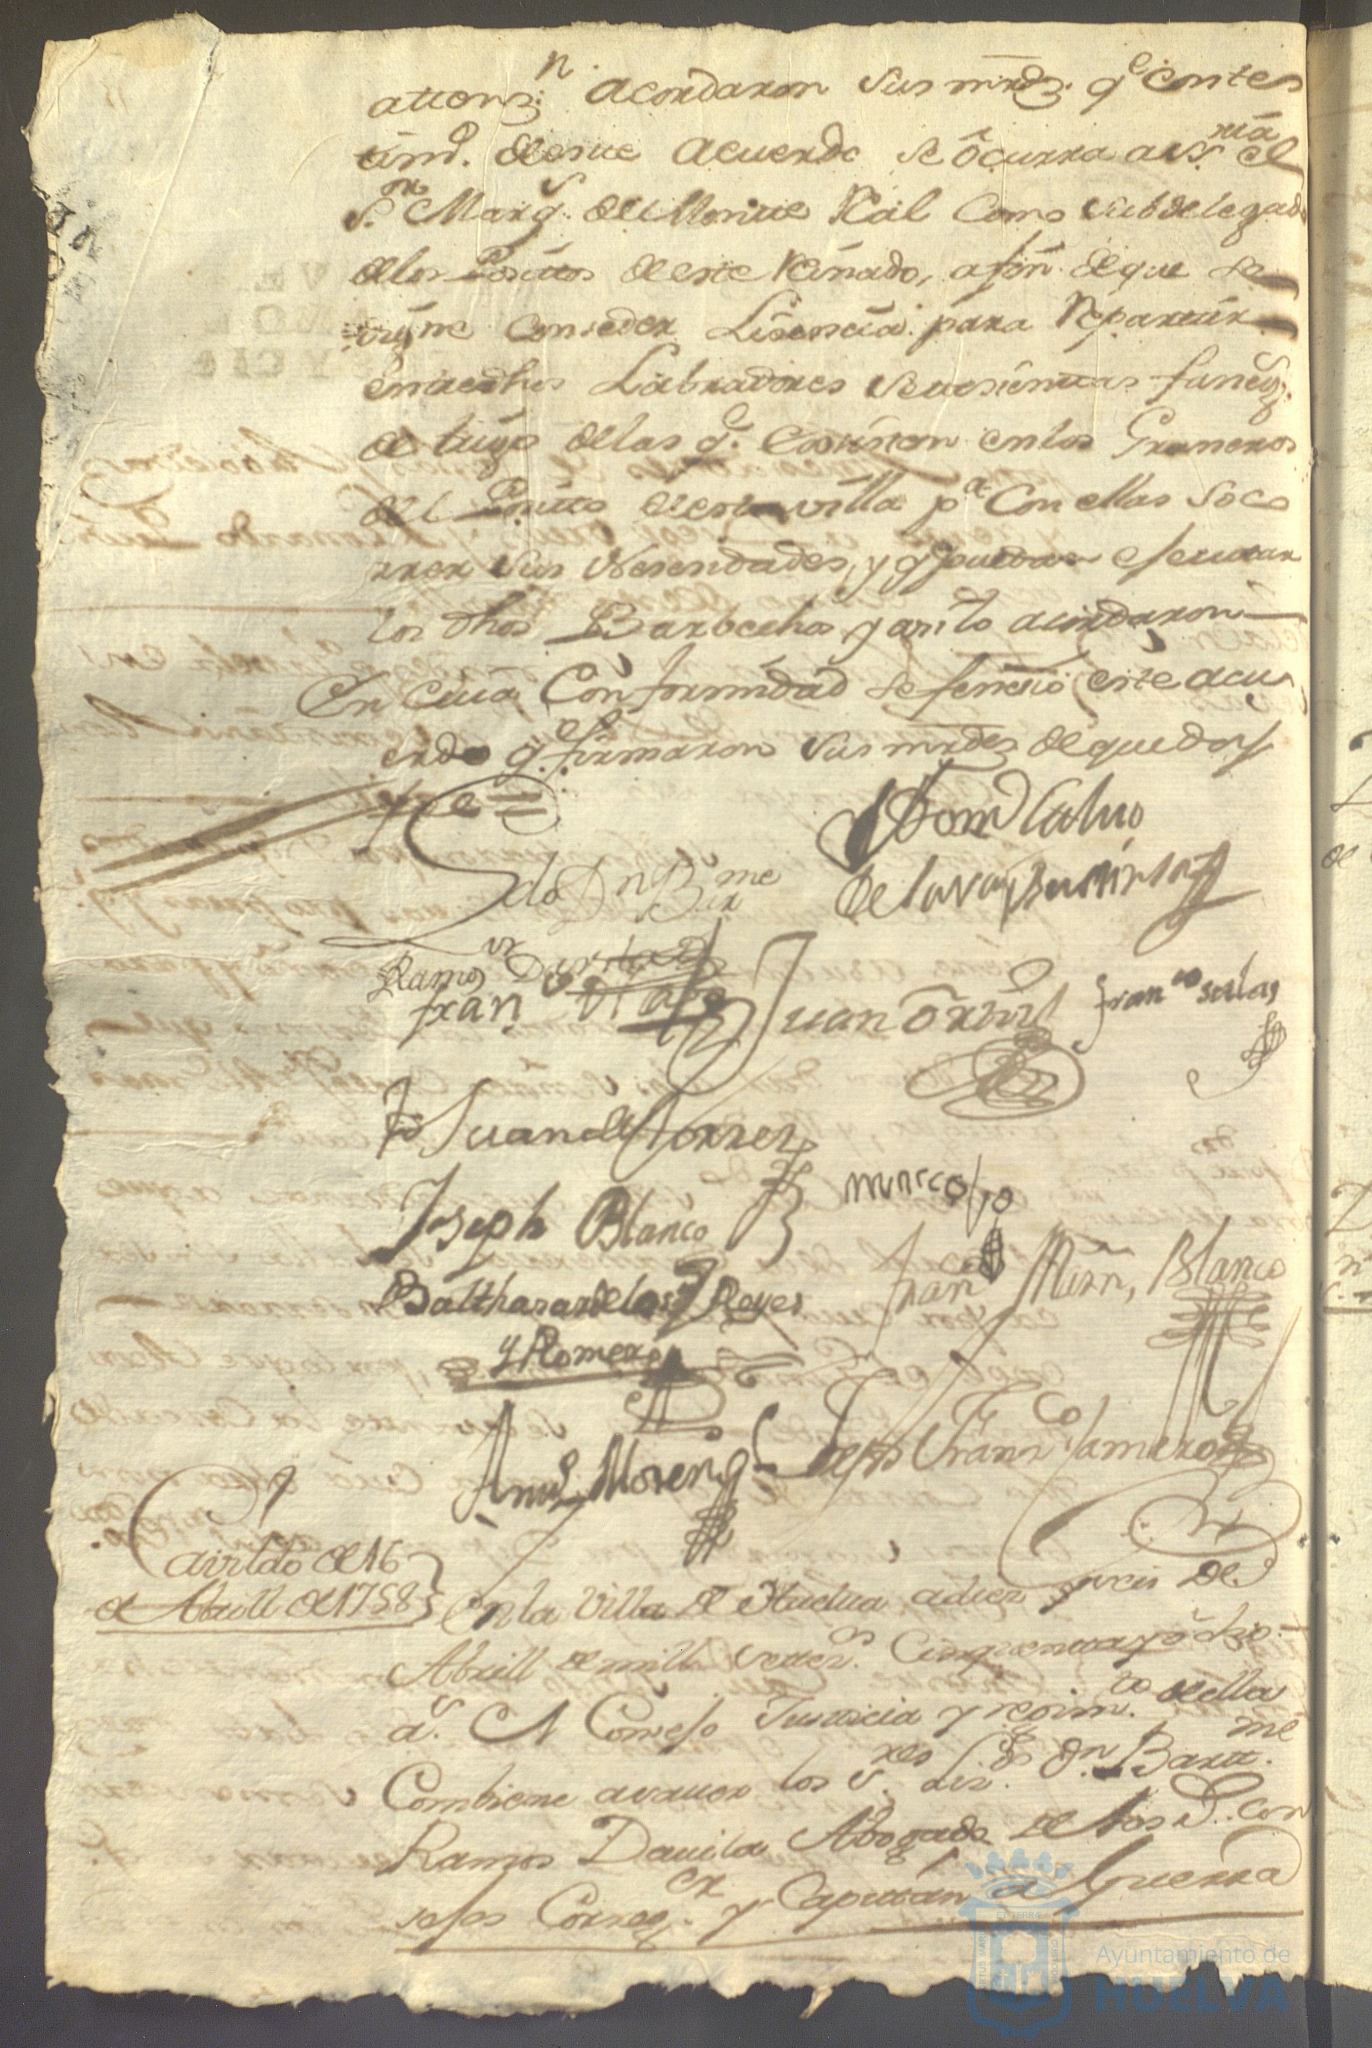 attenz.n acordaron sus mrds. qe con tes
timo. deste acuerdo se ocurra a el
Sor Marqs. del Monte Real como subdelegado
de los Positos de este Reinado, a fin de que se
sirme conseder Lisencia para Repartir
entre dhos Labradores fanegs.
de trigo de las q. existen en los Graneros
del Posito de esta villa pa. Con ellas soco
rrer sus Nesesidades, y q puedan efecutar
los dhos Barbechos y asi lo acordaron
En cuia Conformidad se fenecio este acu
erdo qe. firmaron sus mrdes de que doy
fee =
Ldo Dn Bme
Ramos Davila
Domo Calvo
de la
Fran
Juan Ortiz
Franco Salas
Juan de Torres
Joseph Blanco
Marcos
Balthasar de los Reyes
y Romero
Franco Mrn, Blanco
Ands Moreno
Joseph Franco
Cavildo de 16
de Abrill de 1758
En la Villa de Huelva a diez y seis de
Abrill de mill setezs. Cinquenta y ocho
as. el Consejo Justicia y reximto. de ella
Combiene a saver los Sres Lisdo. Dn Bartme.
Ramos Davila Abogado de los Rs. Con
sejos Correxr. y Capitan a Guerra
Ayuntamiento de
HUELVA